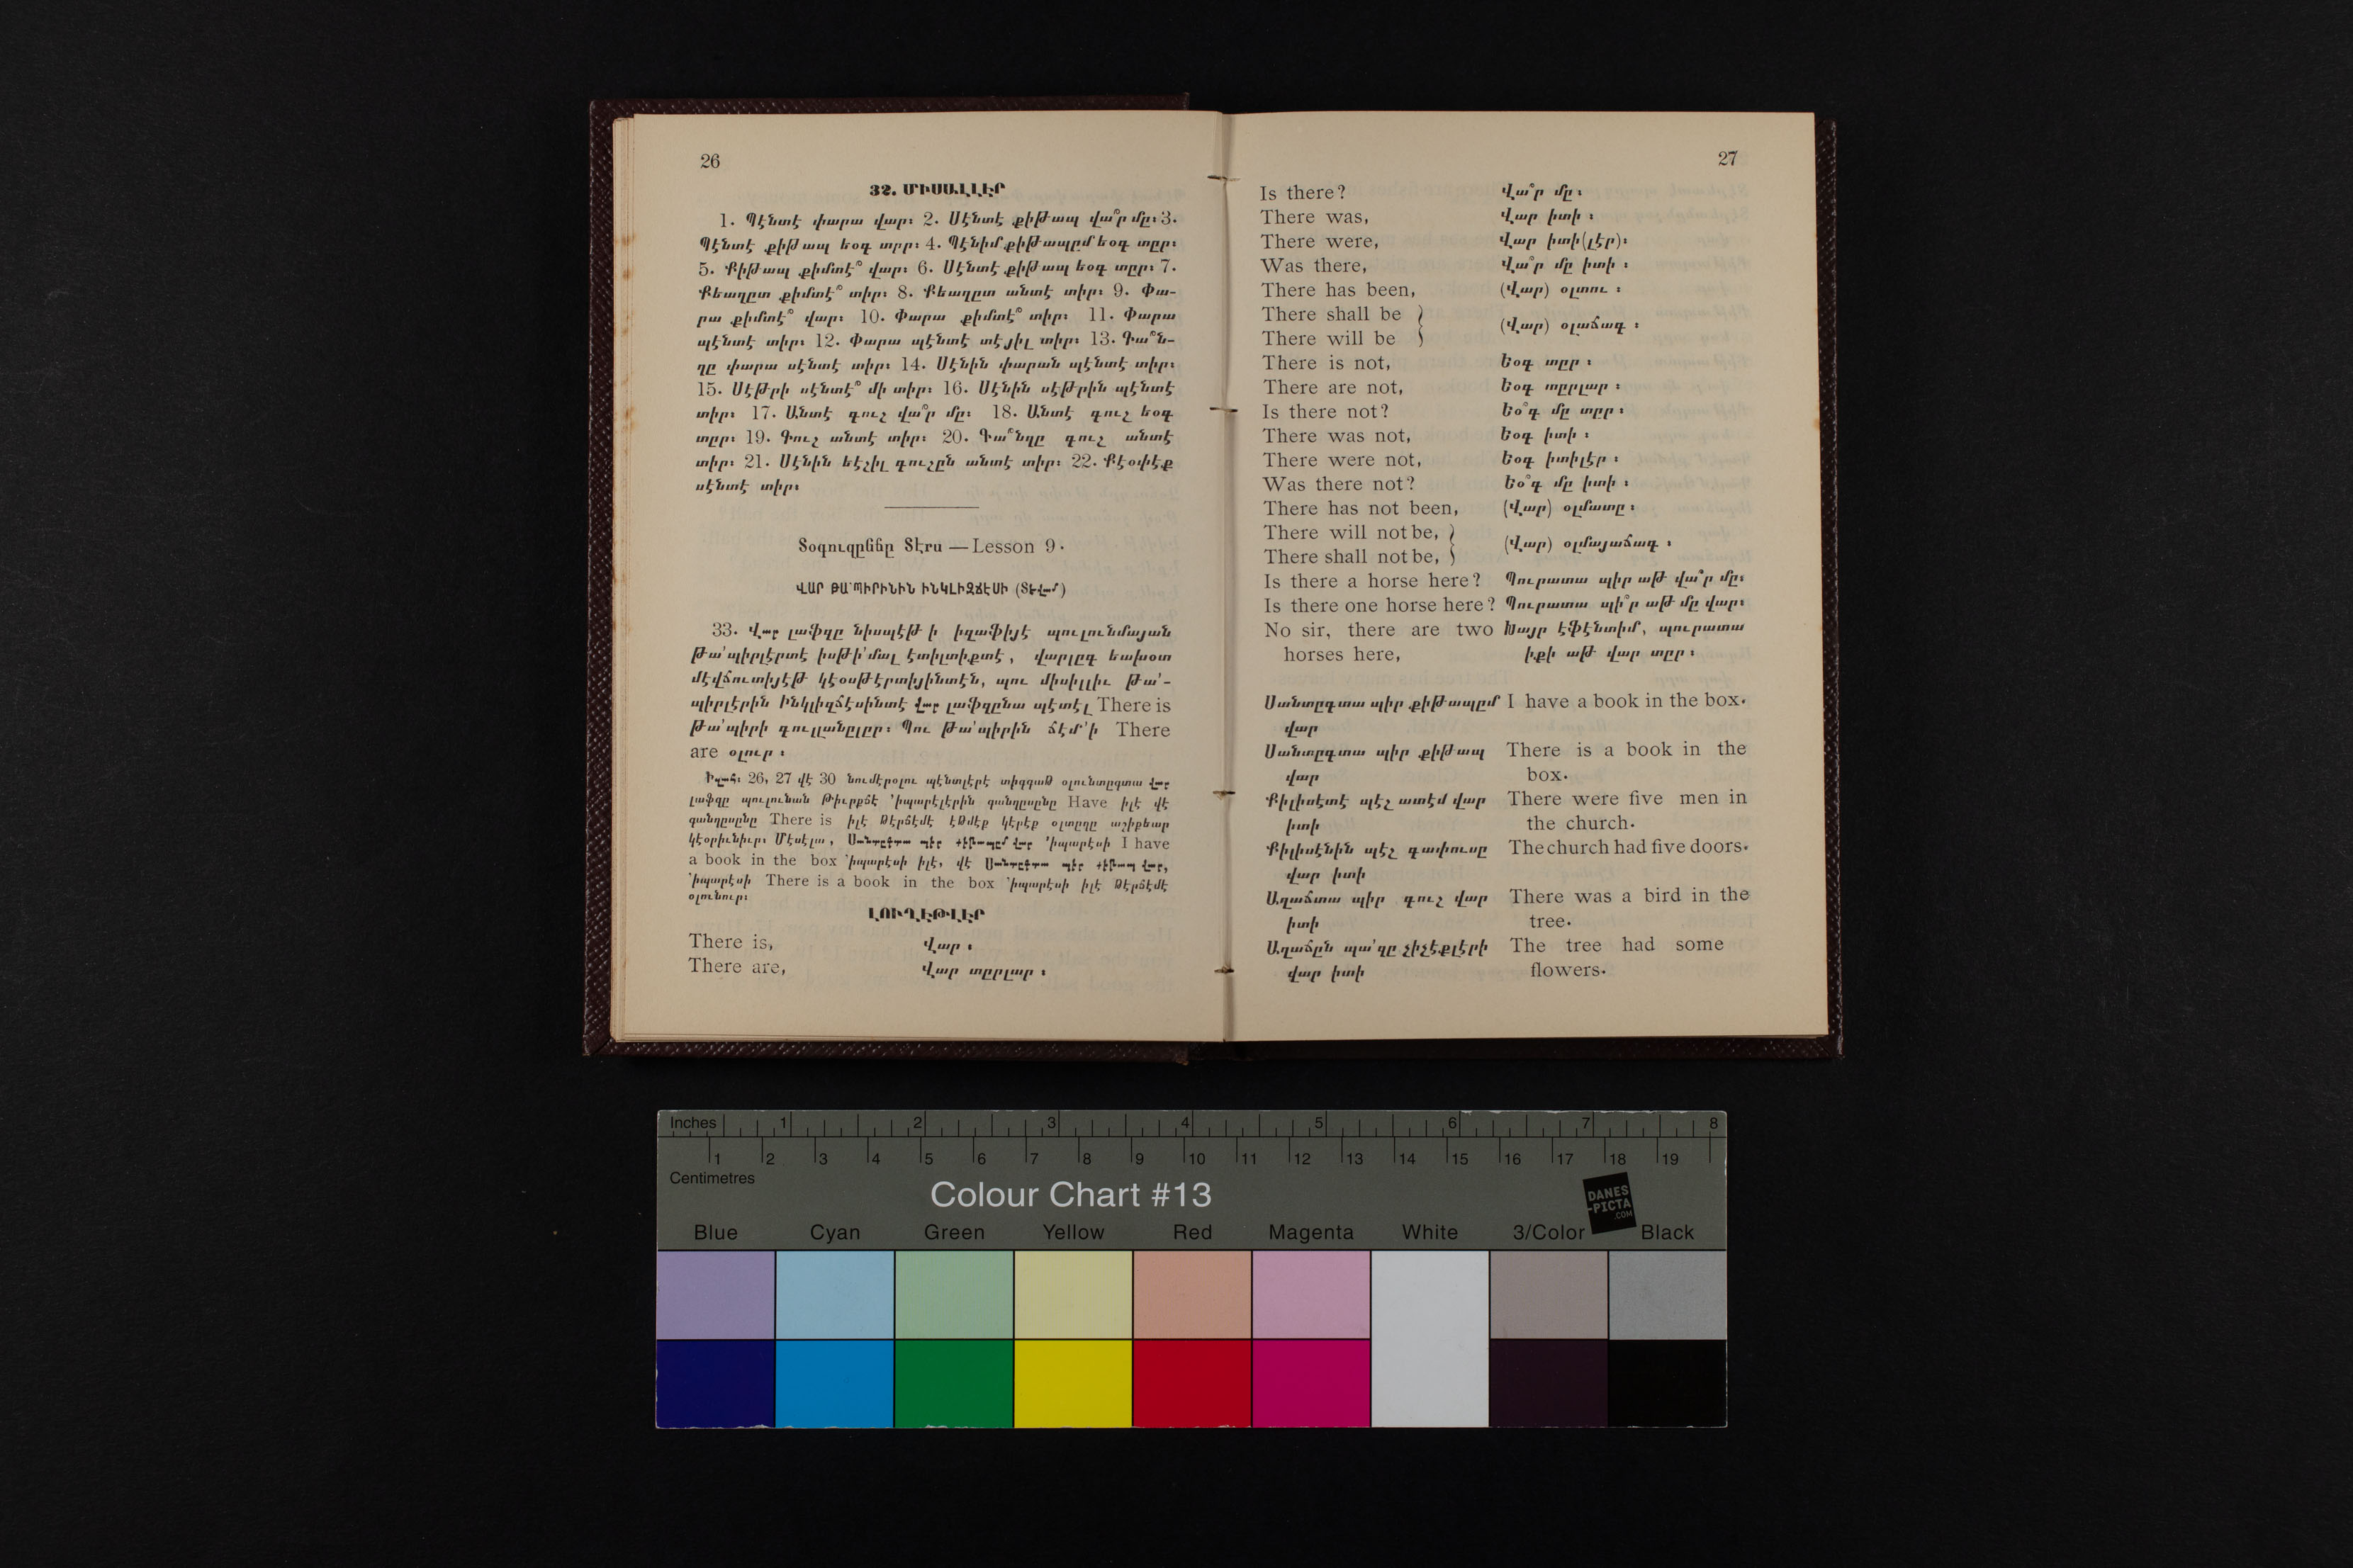 26
32. ՄԻՍԱԼԼԷՐ
1. Պէնտէ փարա վար։ 2. Սէնտէ քիթապ վա՞ր մը։ 3.
Պէնտէ քիթապ եօգ տըր։ 4. Պէնիմ քիթապըմ եօգ տըր։
5. Քիթապ քիմտէ՞ վար։ 6. Սէնտէ քիթապ եօգ տըր։ 7.
Քեաղըտ քիմտէ՞ տիր։ 8. Քեաղըտ անտէ տիր։ 9. Փա-
րա քիմտէ՞ վար։ 10. Փարա քիմտէ՞ տիր։ 11. Փարա
պէնտէ տիր։ 12. Փարա պէնտէ տէյիլ տիր։ 13. Գա՞ն-
ղը փարա սէնտէ տիր։ 14. Սէնին փարան պէնտէ տիր։
15. Սէթրի սէնտէ՞ մի տիր։ 16. Սէնին սէթրին պէնտէ
տիր։ 17. Անտէ գուշ վա՞ր մը։ 18. Անտէ գուշ եօգ
տըր։ 19. Գուշ անտէ տիր։ 20. Գա՞նղը գուշ անտէ
տիր։ 21. Սէնին եէշիլ գուշըն անտէ տիր։ 22. Քէօփէք
սէնտէ տիր։
Տօգուզընճը Տէրս — Lesson 9.
ՎԱՐ ԹԱ՚ՊԻՐԻՆԻՆ ԻՆԿԼԻԶՃԷՍԻ (Տէվամ)
33. Վար լաֆզը նիսպէթ ի իզաֆիյէ պուլունմայան
թա՚պիրլէրտէ իսթի՚մալ էտիլտիքտէ, վարլըգ եախօտ
մէվճուտիյէթ կէօսթէրտիյինտէն, պու միսիլլիւ թա՚-
պիրլէրին Ինկլիզճէսինտէ վար լաֆզընա պէտէլ There is
թա՚պիրի գուլլանըլըր։ Պու թա՚պիրին ճէմ՚ի There
are օլուր։
Իզահ։ 26, 27 վէ 30 նումէրօլու պէնտլէրէ տիգգաթ օլունտըգտա վար
լաֆզը պուլունան Թիւրքճէ ՚իպարէլէրին գանղըսընը Have իլէ վէ
գանղըսընը There is իլէ թէրճէմէ էթմէք կէրէք օլտըղը աշիքեար
կէօրիւնիւր։ Մէսէլա, Սանտըգտա պիր քիթապըմ վար ՚իպարէսի I have
a book in the box ՚իպարէսի իլէ, վէ Սանտըգտա պիր քիթապ վար,
՚իպարէսի There is a book in the box ՚իպարէսի իլէ թէրճէմէ
օլունուր։
ԼՈՒՂԷԹԼԷՐ
There is, Վար։
There are, Վար տըրլար։
27
Is there? Վա՞ր մը։
There was, Վար իտի։
There were, Վար իտի(լէր)։
Was there, Վա՞ր մը իտի։
There has been, (Վար) օլտու։
There shall be
There will be (Վար) օլաճագ։
There is not, Եօգ տըր։
There are not, Եօգ տըրլար։
Is there not? Եօ՞գ մը տըր։
There was not, Եօգ իտի։
There were not, Եօգ իտիլէր։
Was there not? Եօ՞գ մը իտի։
There has not been, (Վար) օլմատը։
There will not be,
There shall not be, (Վար) օլմայաճագ։
Is there a horse here? Պուրատա պիր աթ վա՞ր մը։
Is there one horse here? Պուրատա պի՞ր աթ մը վար։
No sir, there are two Խայր էֆէնտիմ, պուրատա
horses here, իքի աթ վար տըր։
Սանտըգտա պիր քիթապըմ I have a book in the box.
վար
Սանտըգտա պիր քիթապ There is a book in the
վար box.
Քիլիսէտէ պէշ ատէմ վար There were five men in
իտի the church.
Քիլիսէնին պէշ գափուսը The church had five doors.
վար իտի
Աղաճտա պիր գուշ վար There was a bird in the
իտի tree.
Աղաճըն պա՚զը չիչէքլէրի The tree had some
վար իտի flowers.
Inches 1 2 3 4 5 6 7 8
1 2 3 4 5 6 7 8 9 10 11 12 13 14 15 16 17 18 19
Centimetres
Colour Chart #13
DANES
-PICTA
.COM
Blue Cyan Green Yellow Red Magenta White 3/Color Black